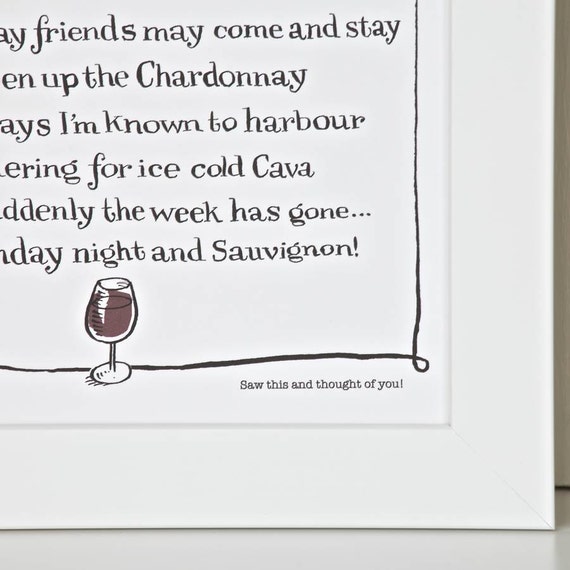 ay friends may come and stay
en up the Chardonnay
ays I'm known to harbour
ering for ice cold Cava
ddenly the week has gone...
nday night and Sauvignon!
Saw this and thought of you!